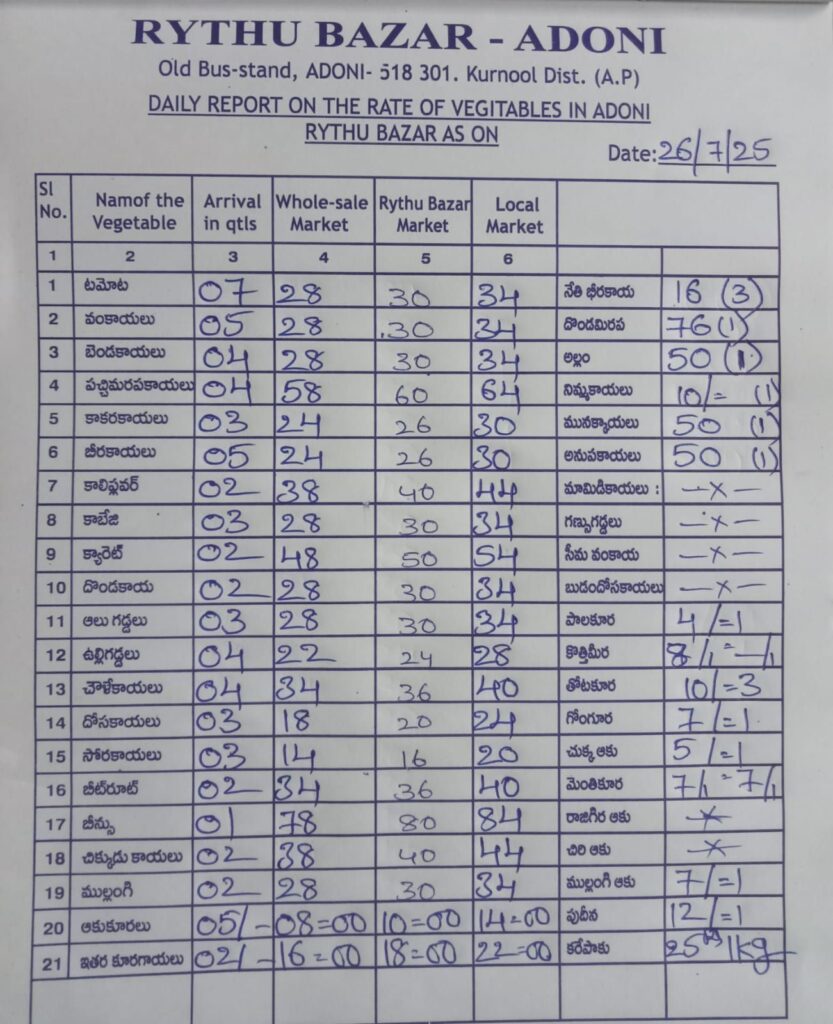 RYTHU BAZAR - ADONI
Old Bus-stand, ADONI- 518 301. Kurnool Dist. (A.P)
DAILY REPORT ON THE RATE OF VEGITABLES IN ADONI
RYTHU BAZAR AS ON
Date: 26/7/25
Sl No. Namof the Vegetable Arrival in qtls Whole-sale Market Rythu Bazar Market Local Market
1 2 3 4 5 6
1 టమోట 07 28 30 34 నేతి భీరకాయ 16 (3)
2 వంకాయలు 05 28 30 34 దొండమిరప 76 (1)
3 బెండకాయలు 04 28 30 34 అల్లం 50 (1)
4 పచ్చిమరపకాయలు 04 58 60 64 నిమ్మకాయలు 10/= (1)
5 కాకరకాయలు 03 24 26 30 మునక్కాయలు 50 (1)
6 బీరకాయలు 05 24 26 30 అనుపకాయలు 50 (1)
7 కాలిఫ్లవర్ 02 38 40 44 మామిడికాయలు : —x—
8 కాబేజి 03 28 30 34 గణ్సుగడ్డలు —x—
9 క్యారెట్ 02 48 50 54 సీమ వంకాయ —x—
10 దొండకాయ 02 28 30 34 బుడందోసకాయలు —x—
11 ఆలు గడ్డలు 03 28 30 34 పాలకూర 4/=1
12 ఉల్లిగడ్డలు 04 22 24 28 కొత్తిమీర 8/1
13 చౌళేకాయలు 04 34 36 40 తోటకూర 10/=3
14 దోసకాయలు 03 18 20 24 గోంగూర 7/=1
15 సోరకాయలు 03 14 16 20 చుక్క ఆకు 5/=1
16 బీట్‌రూట్ 02 34 36 40 మెంతికూర 7/1 = 7/1
17 బీన్సు 01 78 80 84 రాజిగిర ఆకు —x—
18 చిక్కుడు కాయలు 02 38 40 44 చిరి ఆకు —x—
19 ముల్లంగి 02 28 30 34 ముల్లంగి ఆకు 7/=1
20 ఆకుకూరలు 05/- 08=00 10=00 14=00 పుదీన 12/=1
21 ఇతర కూరగాయలు 02/- 16=00 18=00 22=00 కరేపాకు 25 1kg